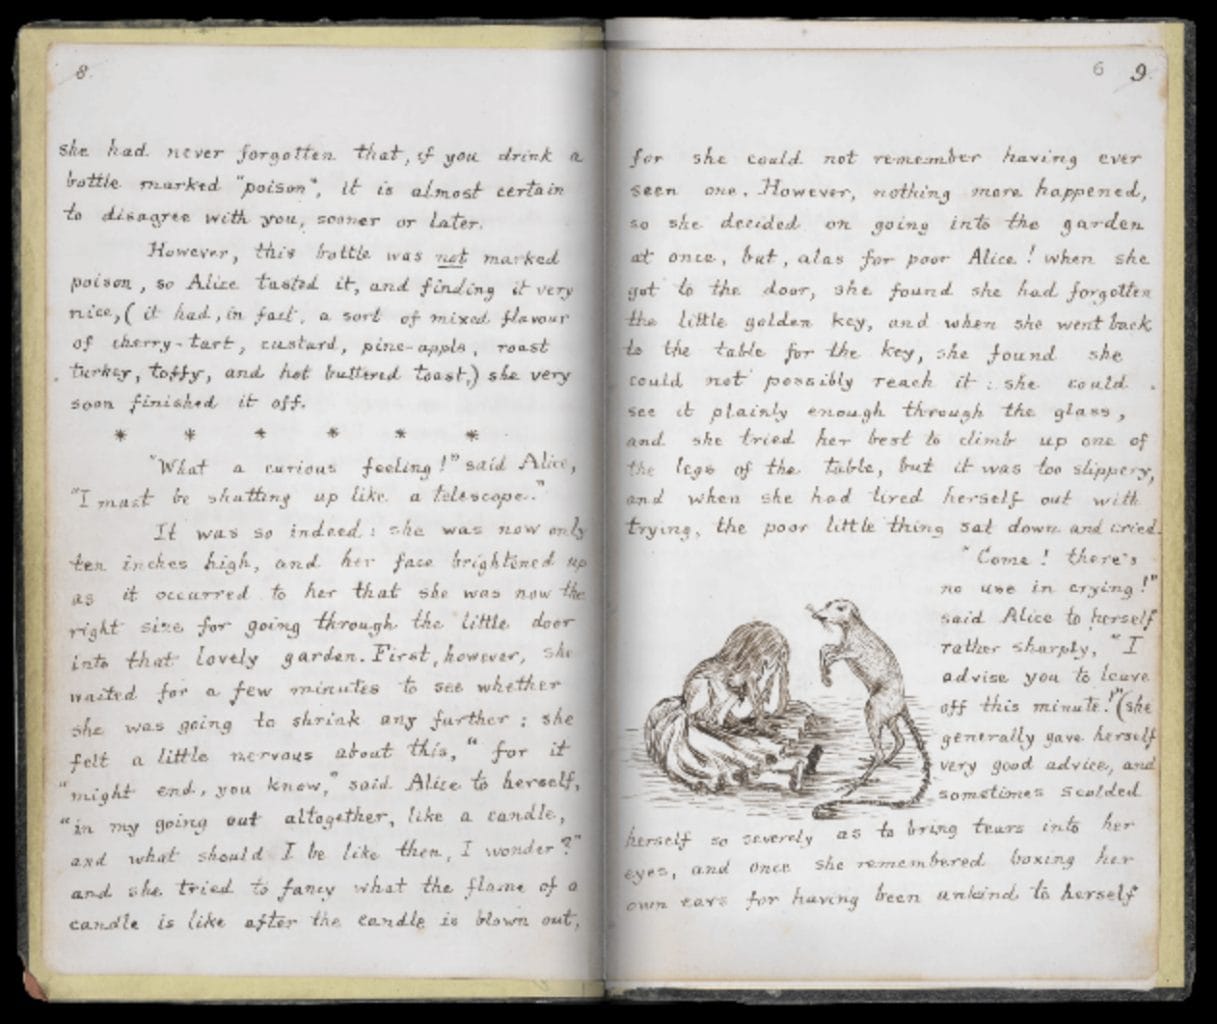 8.
she had never forgotten that, if you drink a
bottle marked "poison", it is almost certain
to disagree with you, sooner or later.
However, this bottle was not marked
poison, so Alice tasted it, and finding it very
nice, (it had, in fact, a sort of mixed flavour
of cherry-tart, custard, pine-apple, roast
turkey, toffy, and hot buttered toast,) she very
soon finished it off.
* * * * * *
"What a curious feeling!" said Alice,
"I must be shutting up like a telescope."
It was so indeed: she was now only
ten inches high, and her face brightened up
as it occurred to her that she was now the
right size for going through the little door
into that lovely garden. First, however, she
waited for a few minutes to see whether
she was going to shrink any further: she
felt a little nervous about this, "for it
"might end, you know," said Alice to herself,
"in my going out altogether, like a candle,
and what should I be like then, I wonder?"
and she tried to fancy what the flame of a
candle is like after the candle is blown out,
6 9.
for she could not remember having ever
seen one. However, nothing more happened,
so she decided on going into the garden
at once, but, alas for poor Alice! when she
got to the door, she found she had forgotten
the little golden key, and when she went back
to the table for the key, she found she
could not possibly reach it: she could
see it plainly enough through the glass,
and she tried her best to climb up one of
the legs of the table, but it was too slippery,
and when she had tired herself out with
trying, the poor little thing sat down and cried.
"Come! there's
no use in crying!"
said Alice to herself
rather sharply, "I
advise you to leave
off this minute!" (she
generally gave herself
very good advice, and
sometimes scolded
herself so severely as to bring tears into her
eyes, and once she remembered boxing her
own ears for having been unkind to herself